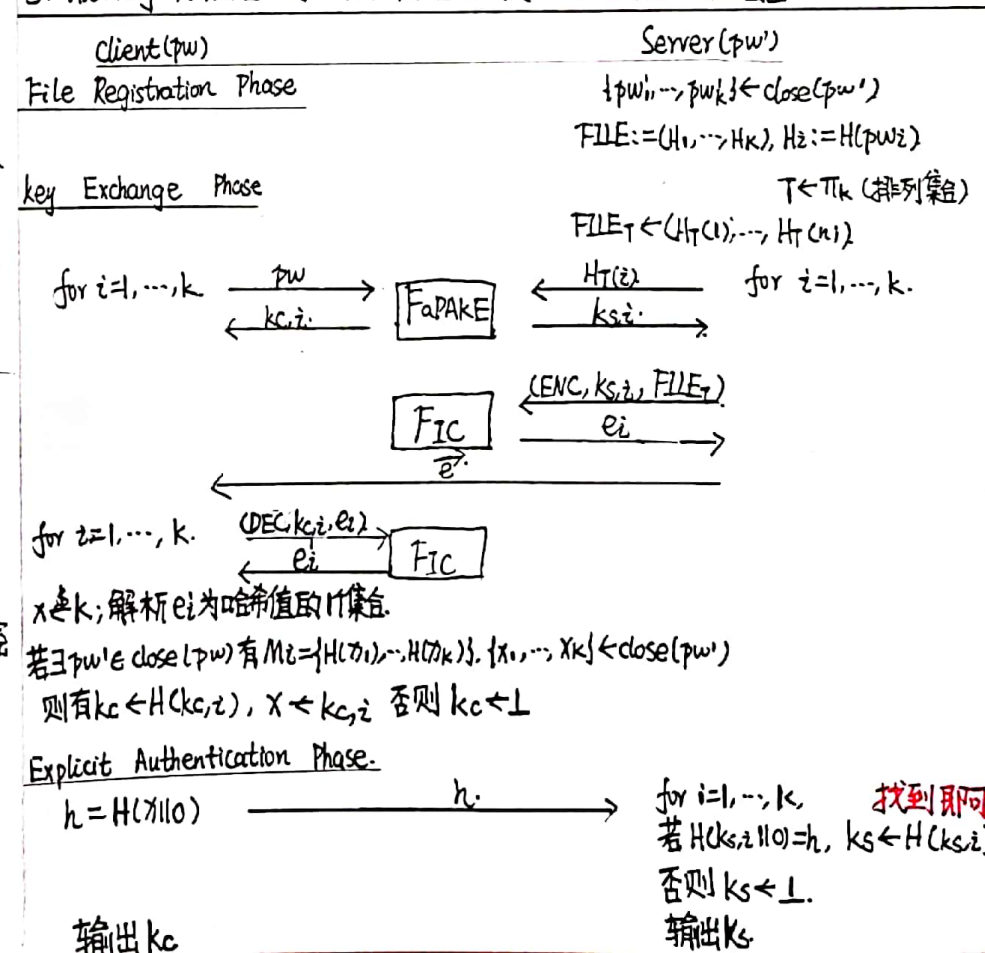 Client(pw) Server(pw')
File Registration Phase {pw'₁,…,pwₖ}←close(pw')
FILE:=(H₁,…,Hₖ), Hi:=H(pwi)
key Exchange Phase T←πk (排列集合)
FILE_T←(H_T(1),…,H_T(n))
for i=1,…,k. pw H_T(i) for i=1,…,k.
kc,i. FaPAKE ks,i.
(ENC, ks,i, FILE_T)
FIC ei
e.
for i=1,…,k. (DEC,kc,i,ei)
ei FIC
解析ei为哈希值的集合.
若∃pw'∈close(pw)有Mi={H(x₁),…,H(xₖ)}, {x₁,…,xₖ}←close(pw')
则有kc←H(kc,i), x←kc,i 否则kc←⊥
Explicit Authentication Phase.
h=H(x||0) h. for i=1,…,k, 找到即可
若H(ks,i||0)=h, ks←H(ks,i)
否则ks←⊥.
输出kc 输出ks.